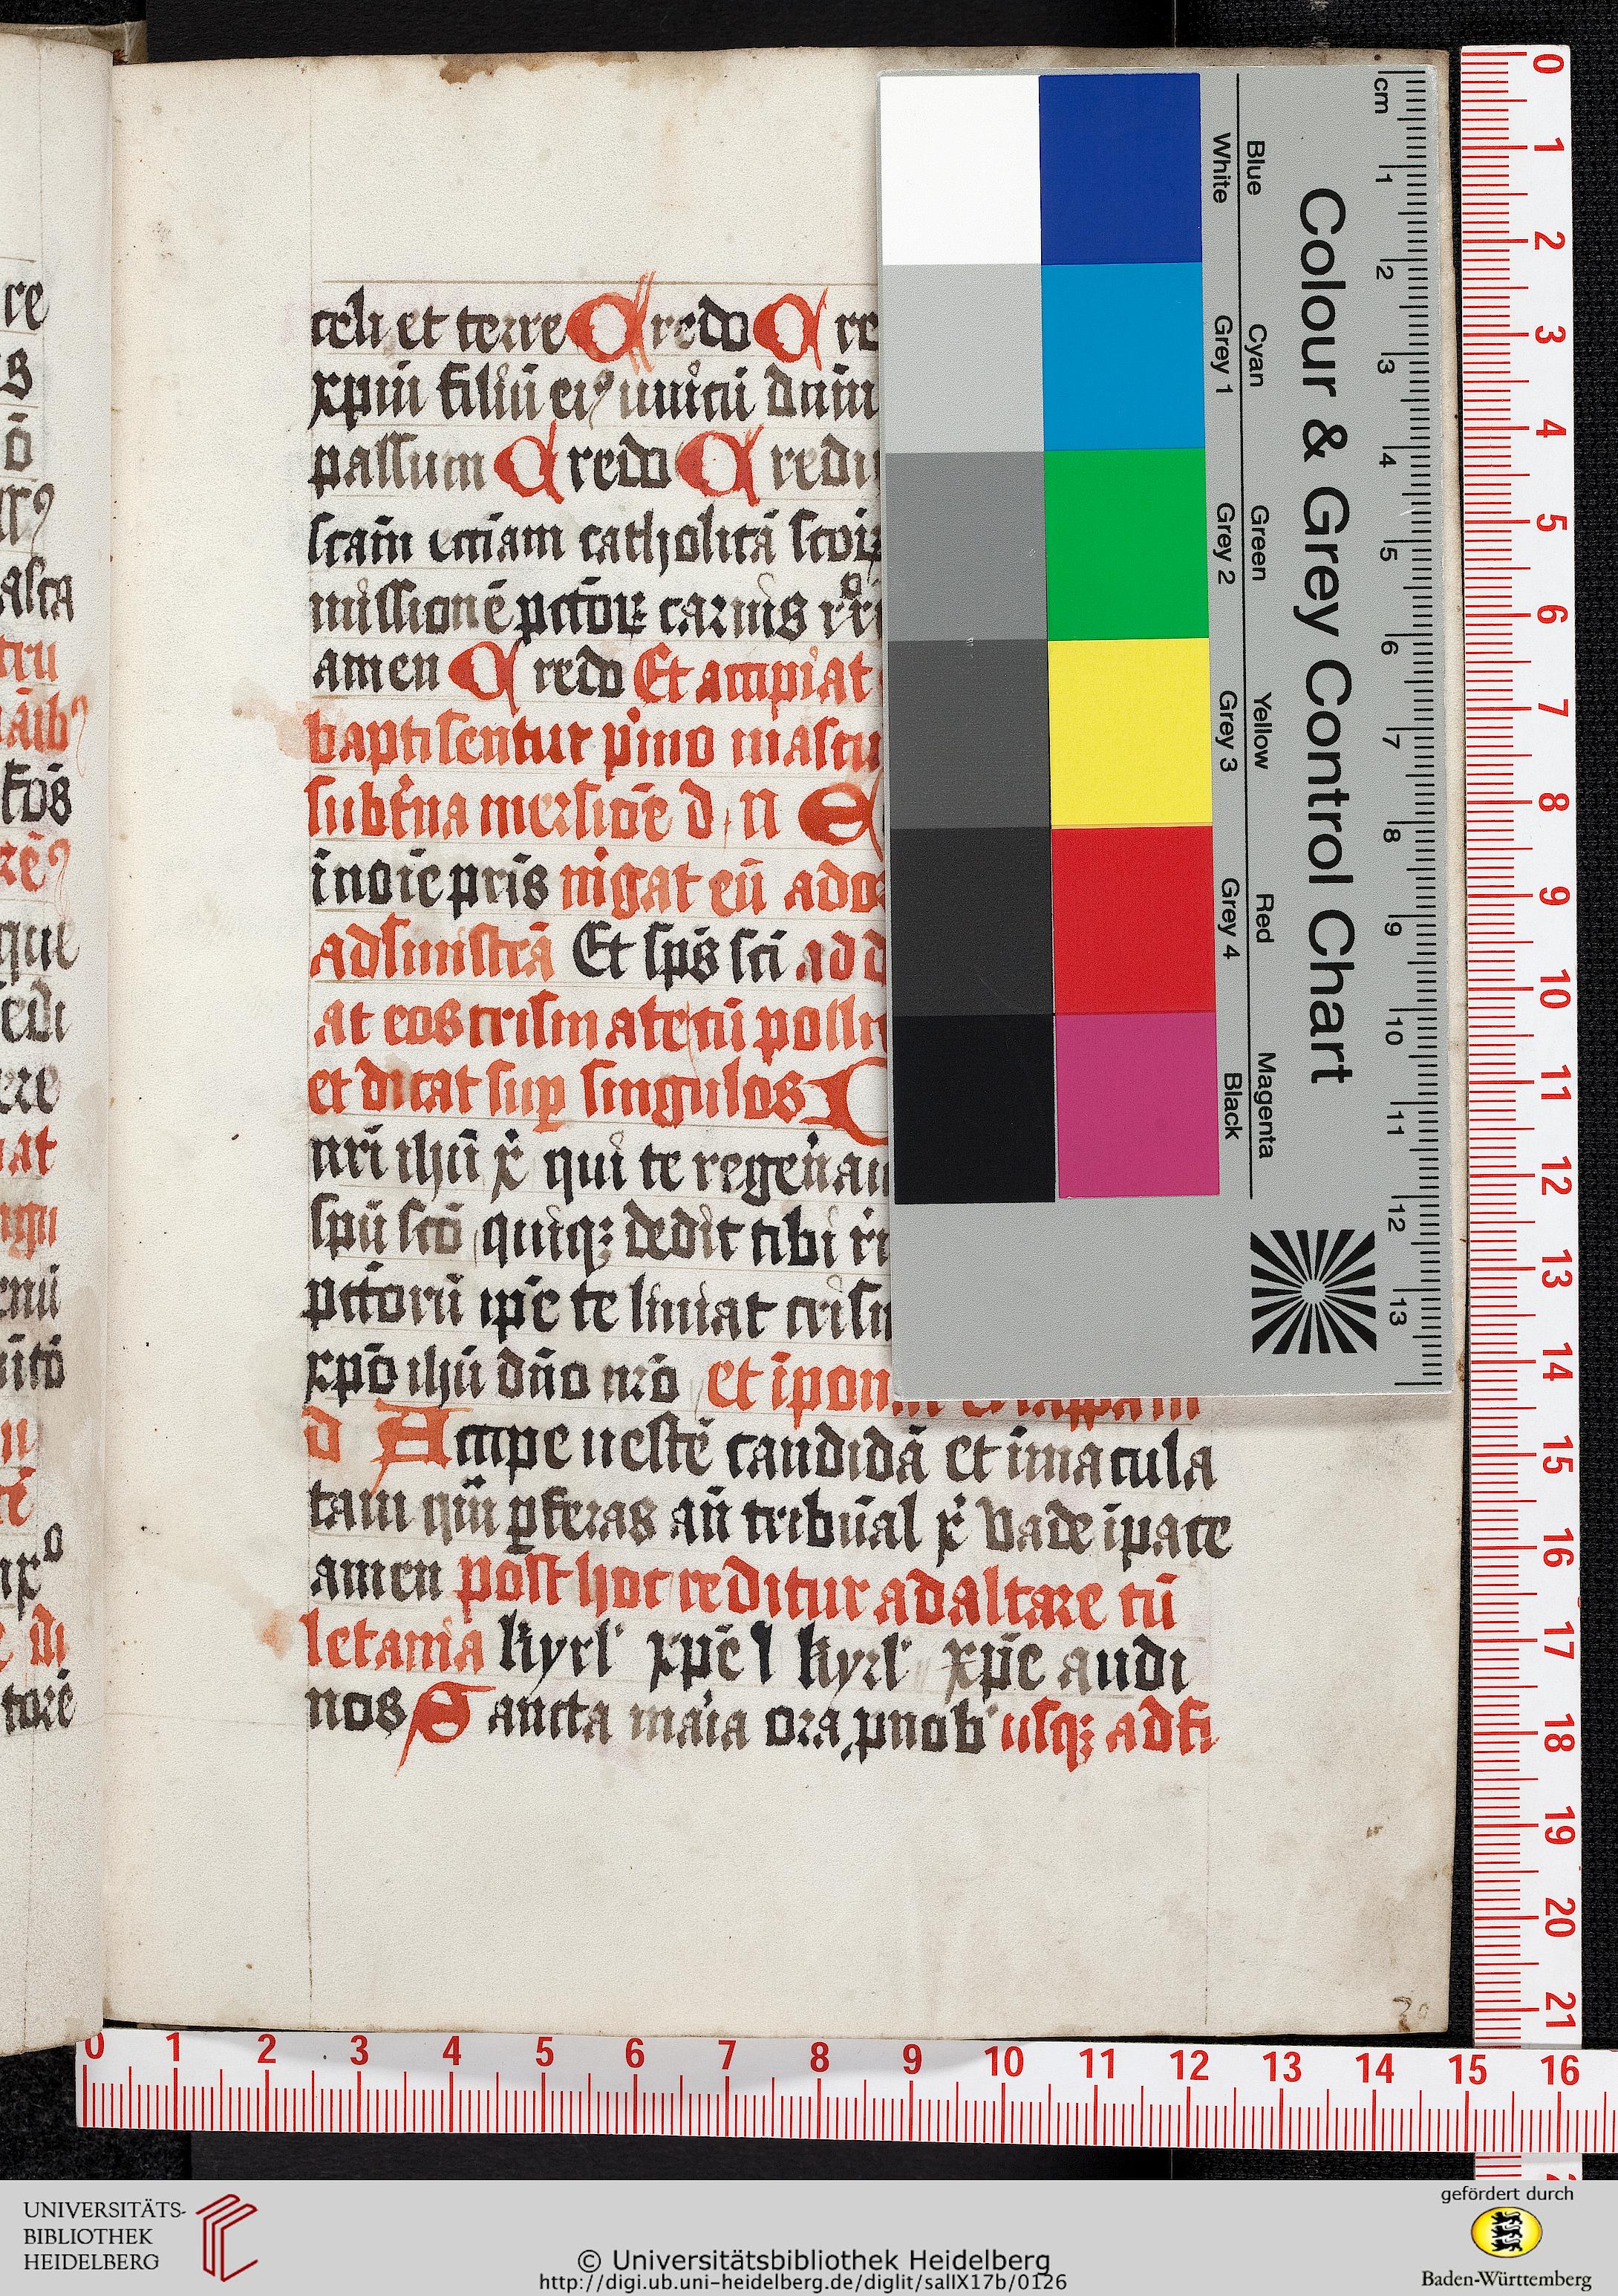 celi et terre Credo Cre
xpm̄ filiū eiꝰ unicū dnm̄
passum Credo Credi
scam̄ ecciam catholicā scoꝝ
missionē pctōꝝ carnis rͥr
amen Credo Et accipiat
baptisentur pͥmo mascu
subtͥna mersiōe d n E
ī noīe pris mgat eū ador
ad sinistrā Et sps̄ sci ad d
at eos crismate cū polli
et dicat suꝑ singulos D
nri ihū xͥ qui te regen̄au
spū scō quiqꝫ dedit tibi rͥ
pctōrū ipē te liniat crism
xpō ihū dn̄o nrō et īpon
d Accipe uestē candidā et īmacula
tam qm̄ ꝑferas an̄ tribun̄al xͥ Vade ī pace
amen post hoc reditur ad altare cū
letania kyrl' xpē l kyrl' xpē audi
nos Sancta maͥia ora pnob' usqꝫ ad fi
re
s
ō
asca
tru
āībꝰ
fōs
rēꝰ
que
edi
ere
at
ngu
enū
ūtō
torē
20
Colour & Grey Control Chart
Blue Cyan Green Yellow Red Magenta
White Grey 1 Grey 2 Grey 3 Grey 4 Black
cm 1 2 3 4 5 6 7 8 9 10 11 12 13
0 1 2 3 4 5 6 7 8 9 10 11 12 13 14 15 16 17 18 19 20 21
0 1 2 3 4 5 6 7 8 9 10 11 12 13 14 15 16
UNIVERSITÄTS-
BIBLIOTHEK
HEIDELBERG
© Universitätsbibliothek Heidelberg
http://digi.ub.uni-heidelberg.de/diglit/salIX17b/0126
gefördert durch
Baden-Württemberg